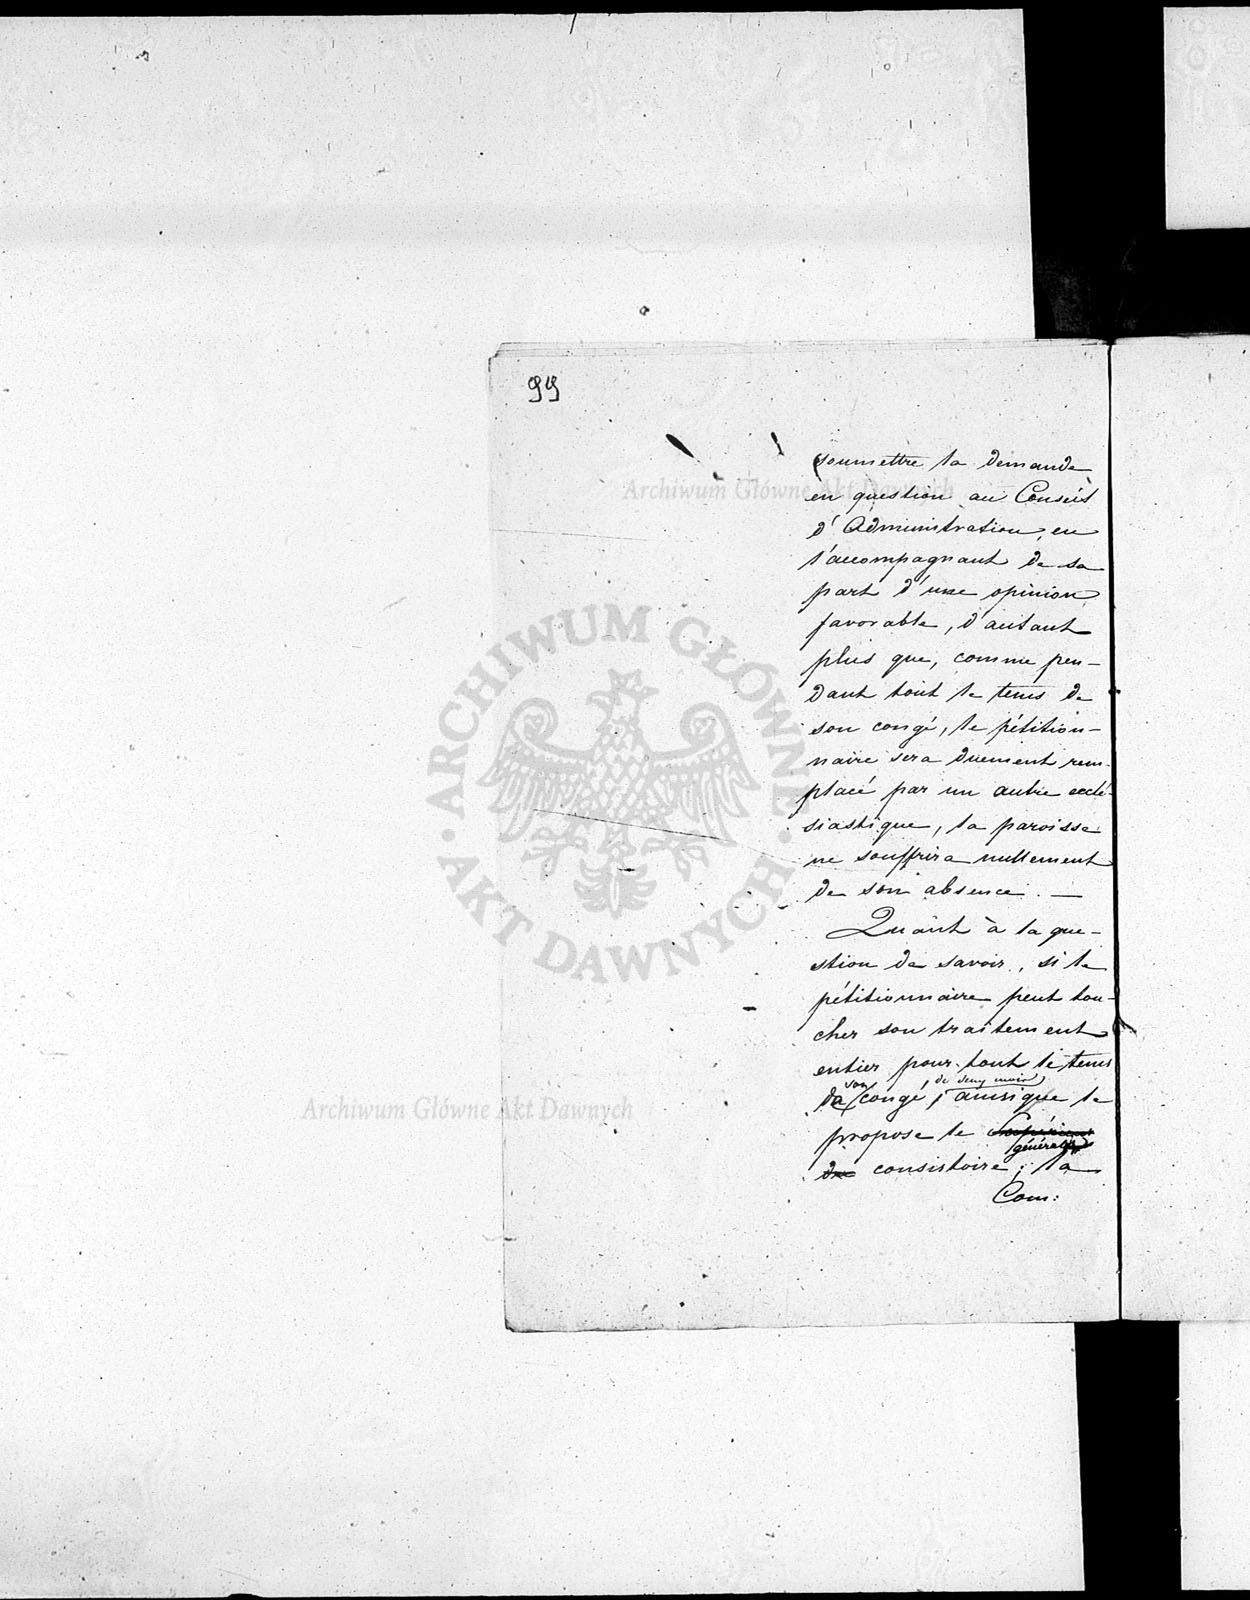 99
soumettre la demande
en question au Conseil
d'Administration, en
l'accompagnant de sa
part d'une opinion
favorable, d'autant
plus que, comme pen-
dant tout le tems de
son congé, le pétition-
naire sera duement rem-
placé par un autre ecclé-
siastique, la paroisse
ne souffrira nullement
de son absence. —
Quant à la que-
stion de savoir, si le
pétitionnaire peut tou-
cher son traitement
entier pour tout le tems
son , de deux mois,
de congé, ainsique le
propose le Supérieur
général
du consistoire; la
Com:
Archiwum Główne Akt Dawnych
ARCHIWUM GŁÓWNE · AKT DAWNYCH ·
Archiwum Główne Akt Dawnych